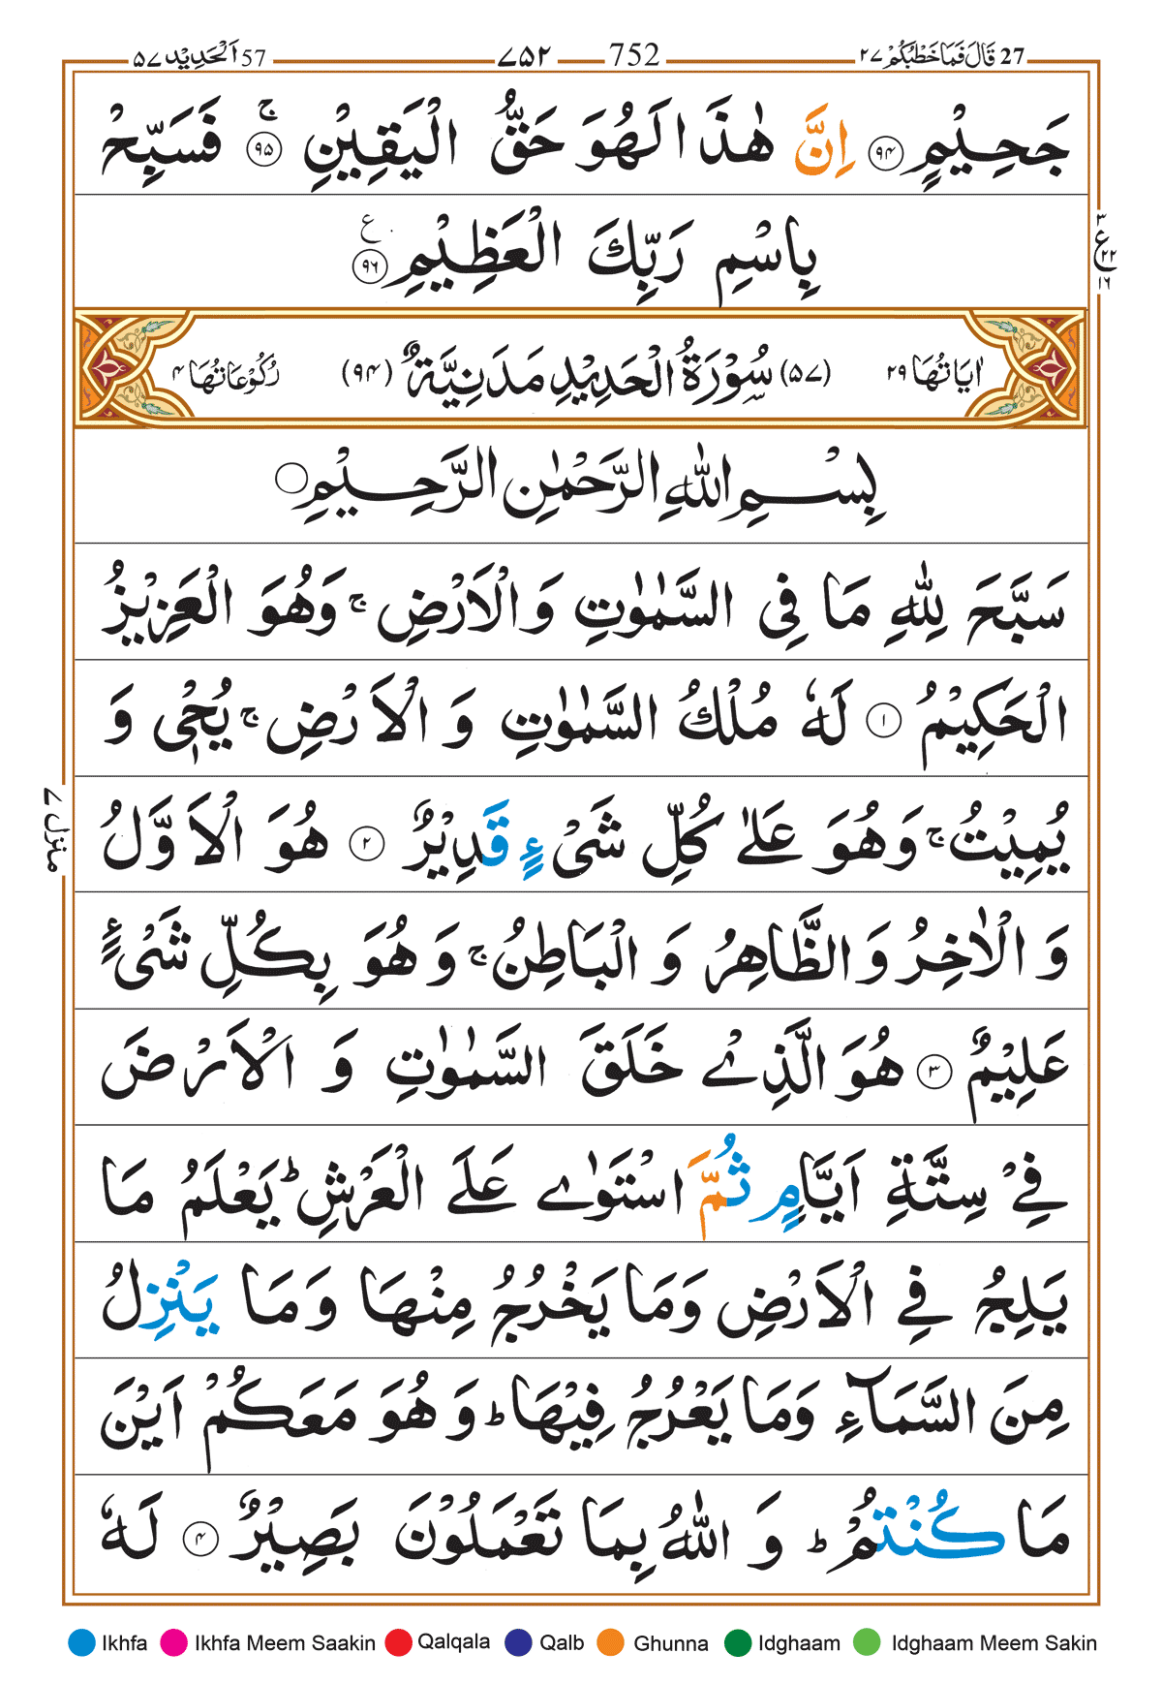 27 قَالَ فَمَا خَطْبُكُمْ ٢٧ 752 ٧٥٢ 57 اَلْحَدِيْد ٥٧
جَحِيْمٍ ٩٤ اِنَّ هٰذَا لَهُوَ حَقُّ الْيَقِيْنِ ۚ ٩٥ فَسَبِّحْ
بِاسْمِ رَبِّكَ الْعَظِيْمِ ٩٦ ع
٣ ع ٢٢ ١٦
اٰيَاتُهَا ٢٩ (٥٧) سُوْرَةُ الْحَدِيْدِ مَدَنِيَّةٌ (٩٤) رُكُوْعَاتُهَا ٤
بِسْمِ اللّٰهِ الرَّحْمٰنِ الرَّحِيْمِ
سَبَّحَ لِلّٰهِ مَا فِى السَّمٰوٰتِ وَالْاَرْضِ ۚ وَهُوَ الْعَزِيْزُ
الْحَكِيْمُ ١ لَهٗ مُلْكُ السَّمٰوٰتِ وَ الْاَرْضِ ۚ يُحْىٖ وَ
يُمِيْتُ ۚ وَهُوَ عَلٰى كُلِّ شَىْءٍ قَدِيْرٌ ٢ هُوَ الْاَوَّلُ
وَ الْاٰخِرُ وَ الظَّاهِرُ وَ الْبَاطِنُ ۚ وَ هُوَ بِكُلِّ شَىْءٍ
عَلِيْمٌ ٣ هُوَ الَّذِىْ خَلَقَ السَّمٰوٰتِ وَ الْاَرْضَ
فِىْ سِتَّةِ اَيَّامٍ ثُمَّ اسْتَوٰى عَلَى الْعَرْشِ ؕ يَعْلَمُ مَا
يَلِجُ فِى الْاَرْضِ وَمَا يَخْرُجُ مِنْهَا وَمَا يَنْزِلُ
مِنَ السَّمَآءِ وَمَا يَعْرُجُ فِيْهَا ؕ وَ هُوَ مَعَكُمْ اَيْنَ
مَا كُنْتُمْ ؕ وَ اللّٰهُ بِمَا تَعْمَلُوْنَ بَصِيْرٌ ٤ لَهٗ
منزل ٧
Ikhfa Ikhfa Meem Saakin Qalqala Qalb Ghunna Idghaam Idghaam Meem Sakin